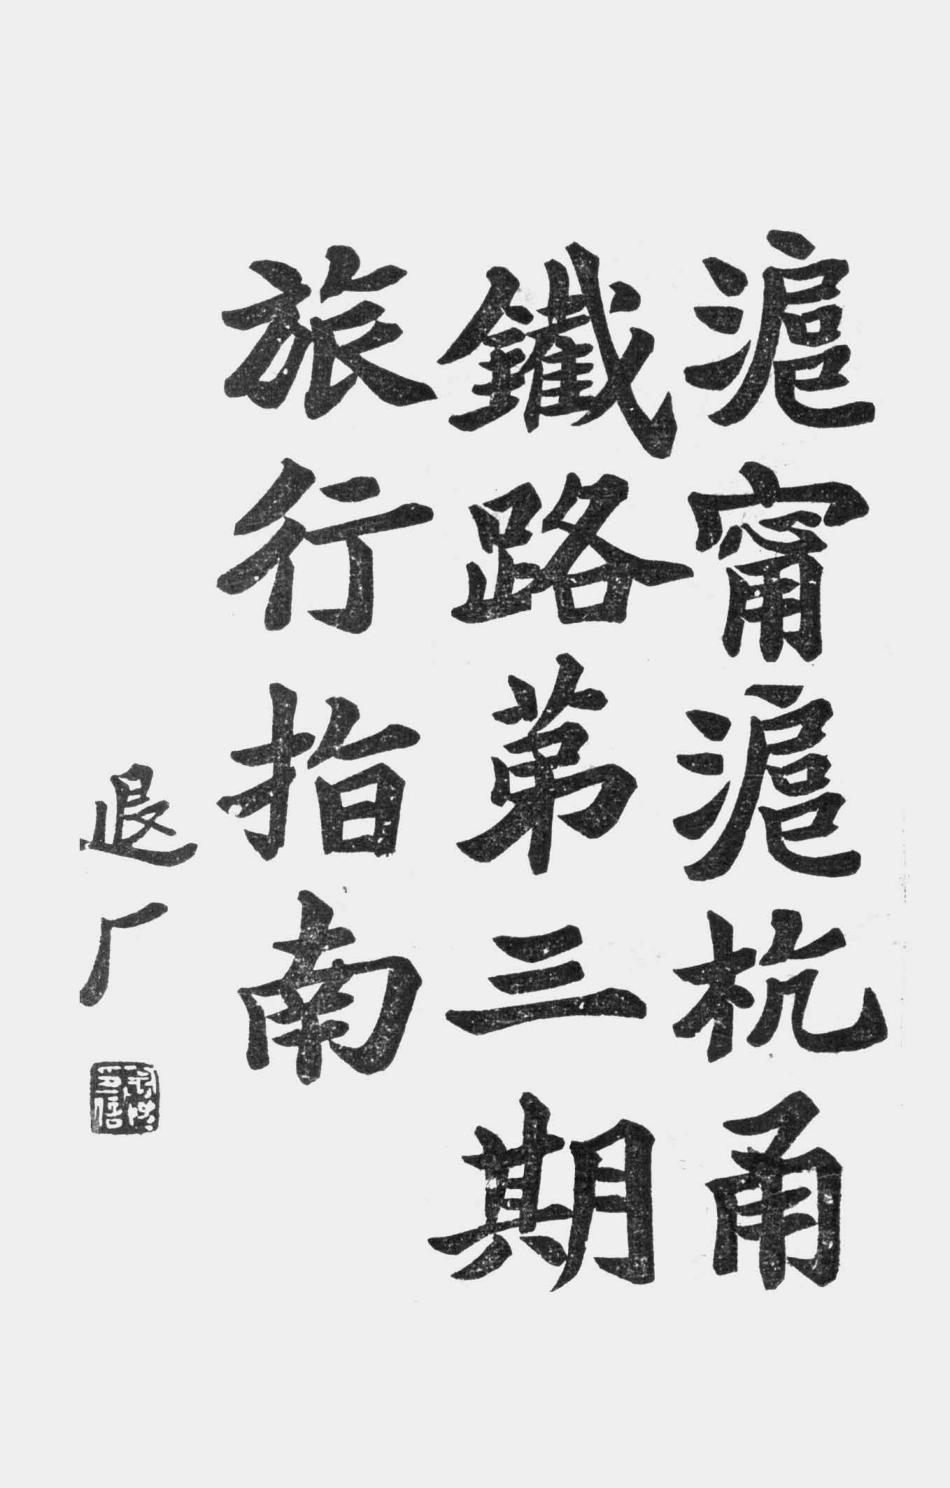 滬甯滬杭甬
鐵路苐三期
旅行指南
退厂